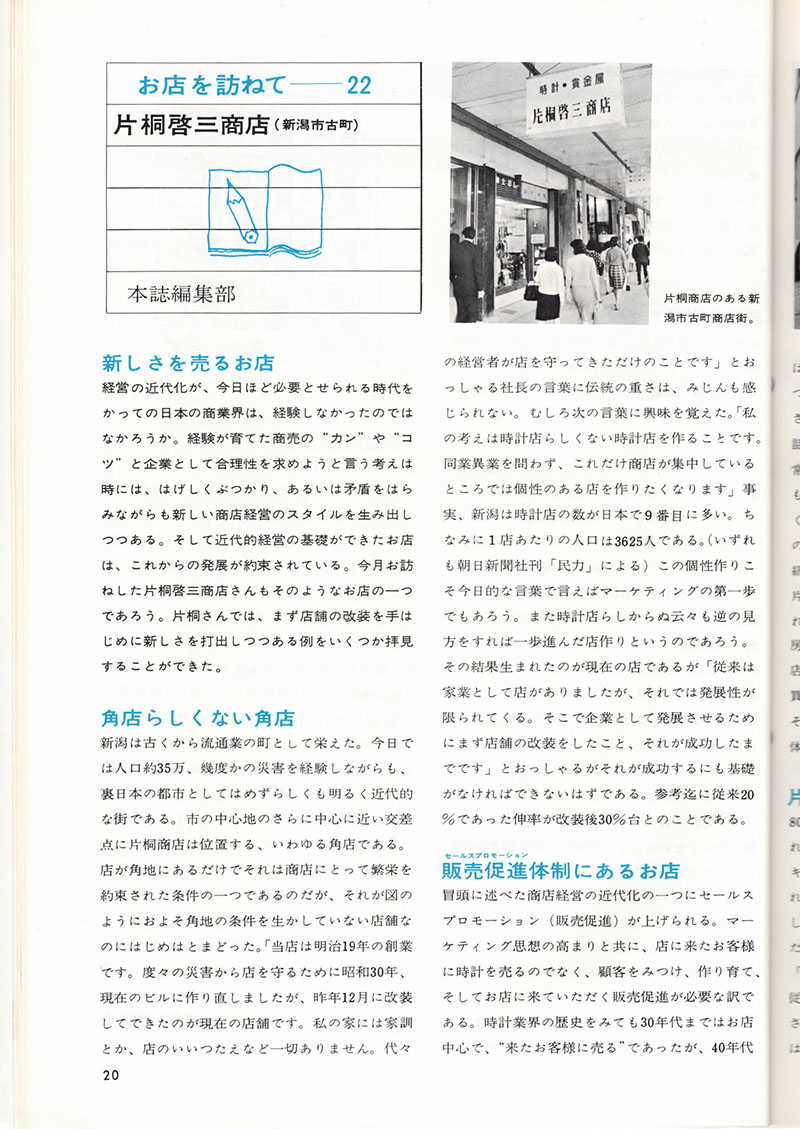 お店を訪ねて――22
片桐啓三商店(新潟市古町)
本誌編集部
時計・貴金属
片桐啓三商店
片桐商店のある新
潟市古町商店街。
新しさを売るお店
経営の近代化が、今日ほど必要とせられる時代を
かっての日本の商業界は、経験しなかったのでは
なかろうか。経験が育てた商売の“カン”や“コ
ツ”と企業として合理性を求めようと言う考えは
時には、はげしくぶつかり、あるいは矛盾をはら
みながらも新しい商店経営のスタイルを生み出し
つつある。そして近代的経営の基礎ができたお店
は、これからの発展が約束されている。今月お訪
ねした片桐啓三商店さんもそのようなお店の一つ
であろう。片桐さんでは、まず店舗の改装を手は
じめに新しさを打出しつつある例をいくつか拝見
することができた。
角店らしくない角店
新潟は古くから流通業の町として栄えた。今日で
は人口約35万、幾度かの災害を経験しながらも、
裏日本の都市としてはめずらしくも明るく近代的
な街である。市の中心地のさらに中心に近い交差
点に片桐商店は位置する、いわゆる角店である。
店が角地にあるだけでそれは商店にとって繁栄を
約束された条件の一つであるのだが、それが図の
ようにおよそ角地の条件を生かしていない店舗な
のにはじめはとまどった。「当店は明治19年の創業
です。度々の災害から店を守るために昭和30年、
現在のビルに作り直しましたが、昨年12月に改装
してできたのが現在の店舗です。私の家には家訓
とか、店のいいつたえなど一切ありません。代々
の経営者が店を守ってきただけのことです」とお
っしゃる社長の言葉に伝統の重さは、みじんも感
じられない。むしろ次の言葉に興味を覚えた。「私
の考えは時計店らしくない時計店を作ることです。
同業異業を問わず、これだけ商店が集中している
ところでは個性のある店を作りたくなります」事
実、新潟は時計店の数が日本で9番目に多い。ち
なみに1店あたりの人口は3625人である。(いずれ
も朝日新聞社刊「民力」による)この個性作りこ
そ今日的な言葉で言えばマーケティングの第一歩
でもあろう。また時計店らしからぬ云々も逆の見
方をすれば一歩進んだ店作りというのであろう。
その結果生まれたのが現在の店であるが「従来は
家業として店がありましたが、それでは発展性が
限られてくる。そこで企業として発展させるため
にまず店舗の改装をしたこと、それが成功したま
でです」とおっしゃるがそれが成功するにも基礎
がなければできないはずである。参考迄に従来20
%であった伸率が改装後30%台とのことである。
セールスプロモーション
販売促進体制にあるお店
冒頭に述べた商店経営の近代化の一つにセールス
プロモーション(販売促進)が上げられる。マー
ケティング思想の高まりと共に、店に来たお客様
に時計を売るのでなく、顧客をみつけ、作り育て、
そしてお店に来ていただく販売促進が必要な訳で
ある。時計業界の歴史をみても30年代まではお店
中心で、“来たお客様に売る”であったが、40年代
20